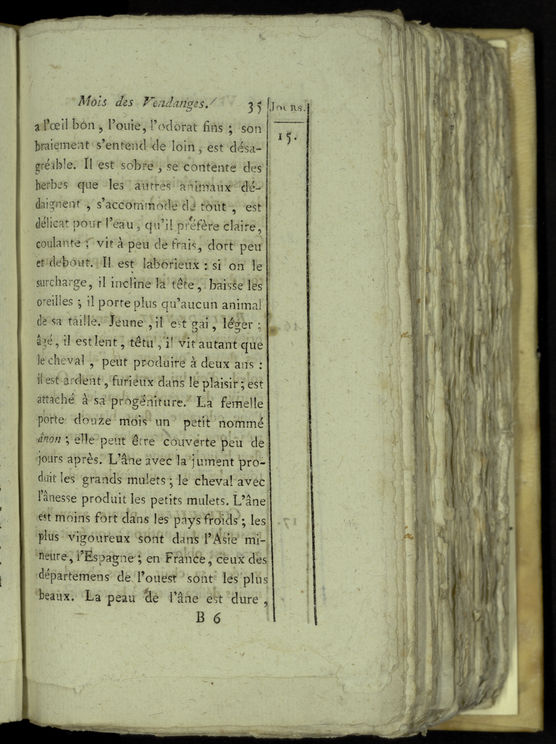 Mois des Vendanges. 35 Jours.
15.
a l'œil bon, l'ouie, l'odorat fins ; son
braiement s'entend de loin, est désa-
gréable. Il est sobre, se contente des
herbes que les autres animaux dé-
daignent, s'accommode de tout, est
délicat pour l'eau, qu'il préfère claire,
coulante ; vit à peu de frais, dort peu
et debout. Il est laborieux : si on le
surcharge, il incline la tête, baisse les
oreilles ; il porte plus qu'aucun animal
de sa taille. Jeune, il est gai, léger ;
âgé, il est lent, têtu, il vit autant que
le cheval, peut produire à deux ans :
il est ardent, furieux dans le plaisir ; est
attaché à sa progéniture. La femelle
porte douze mois un petit nommé
ânon ; elle peut être couverte peu de
jours après. L'âne avec la jument pro-
duit les grands mulets ; le cheval avec
l'ânesse produit les petits mulets. L'âne
est moins fort dans les pays froids ; les
plus vigoureux sont dans l'Asie mi-
neure, l'Espagne ; en France, ceux des
départemens de l'ouest sont les plus
beaux. La peau de l'âne est dure,
B 6